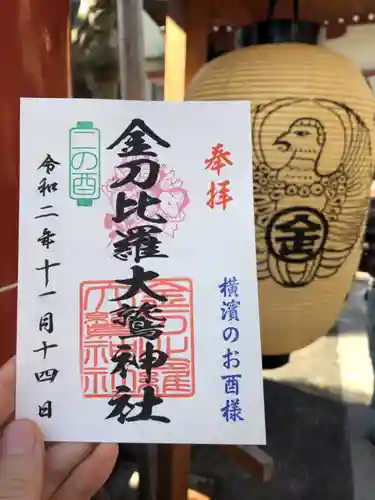 奉拝
横濱のお酉様
金刀比羅大鷲神社
二の酉
令和二年十一月十四日
金